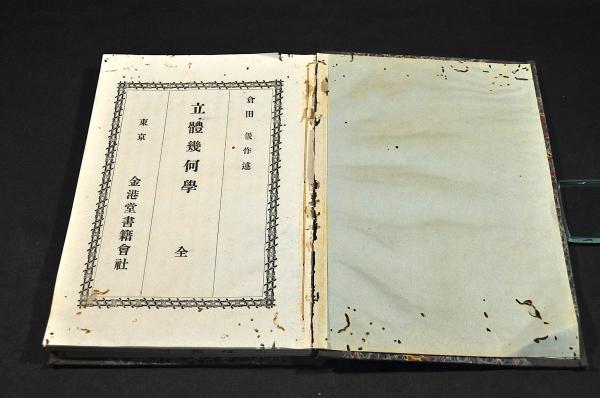 倉田 作述
立體幾何學 全
東京 金港堂書籍會社